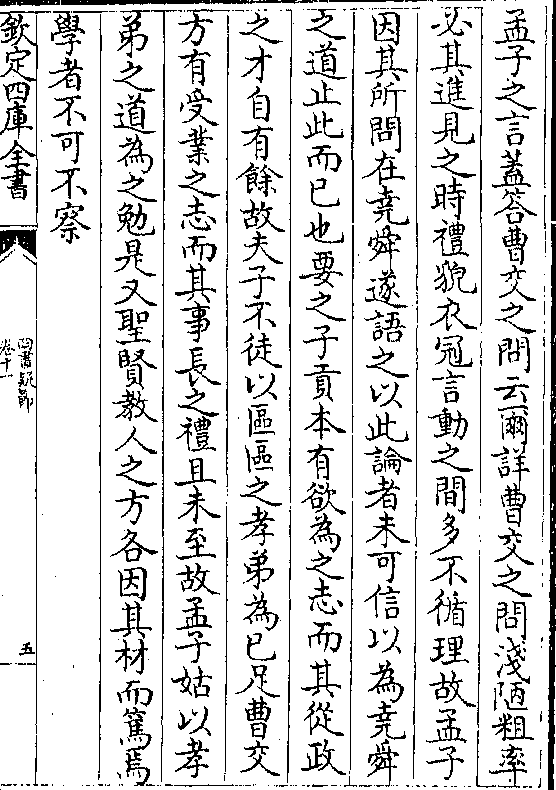 孟子之言蓋答曹交之問云爾詳曹交之問淺陋粗率
必其進見之時禮貌衣冠言動之間多不循理故孟子
因其所問在堯舜遂語之以此論者未可信以為堯舜
之道止此而已也要之子貢本有欲為之志而其從政
之才自有餘故夫子不徒以區區之孝弟為已足曹交
方有受業之志而其事長之禮且未至故孟子姑以孝
弟之道為之勉是又聖賢教人之方各因其材而篤焉
學者不可不察
欽定四庫全書
四書疑節
卷十一
五